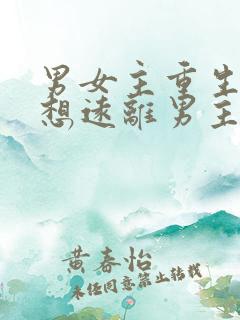 男女主重生
想遠離男主
黄春怡
未经同意禁止转载